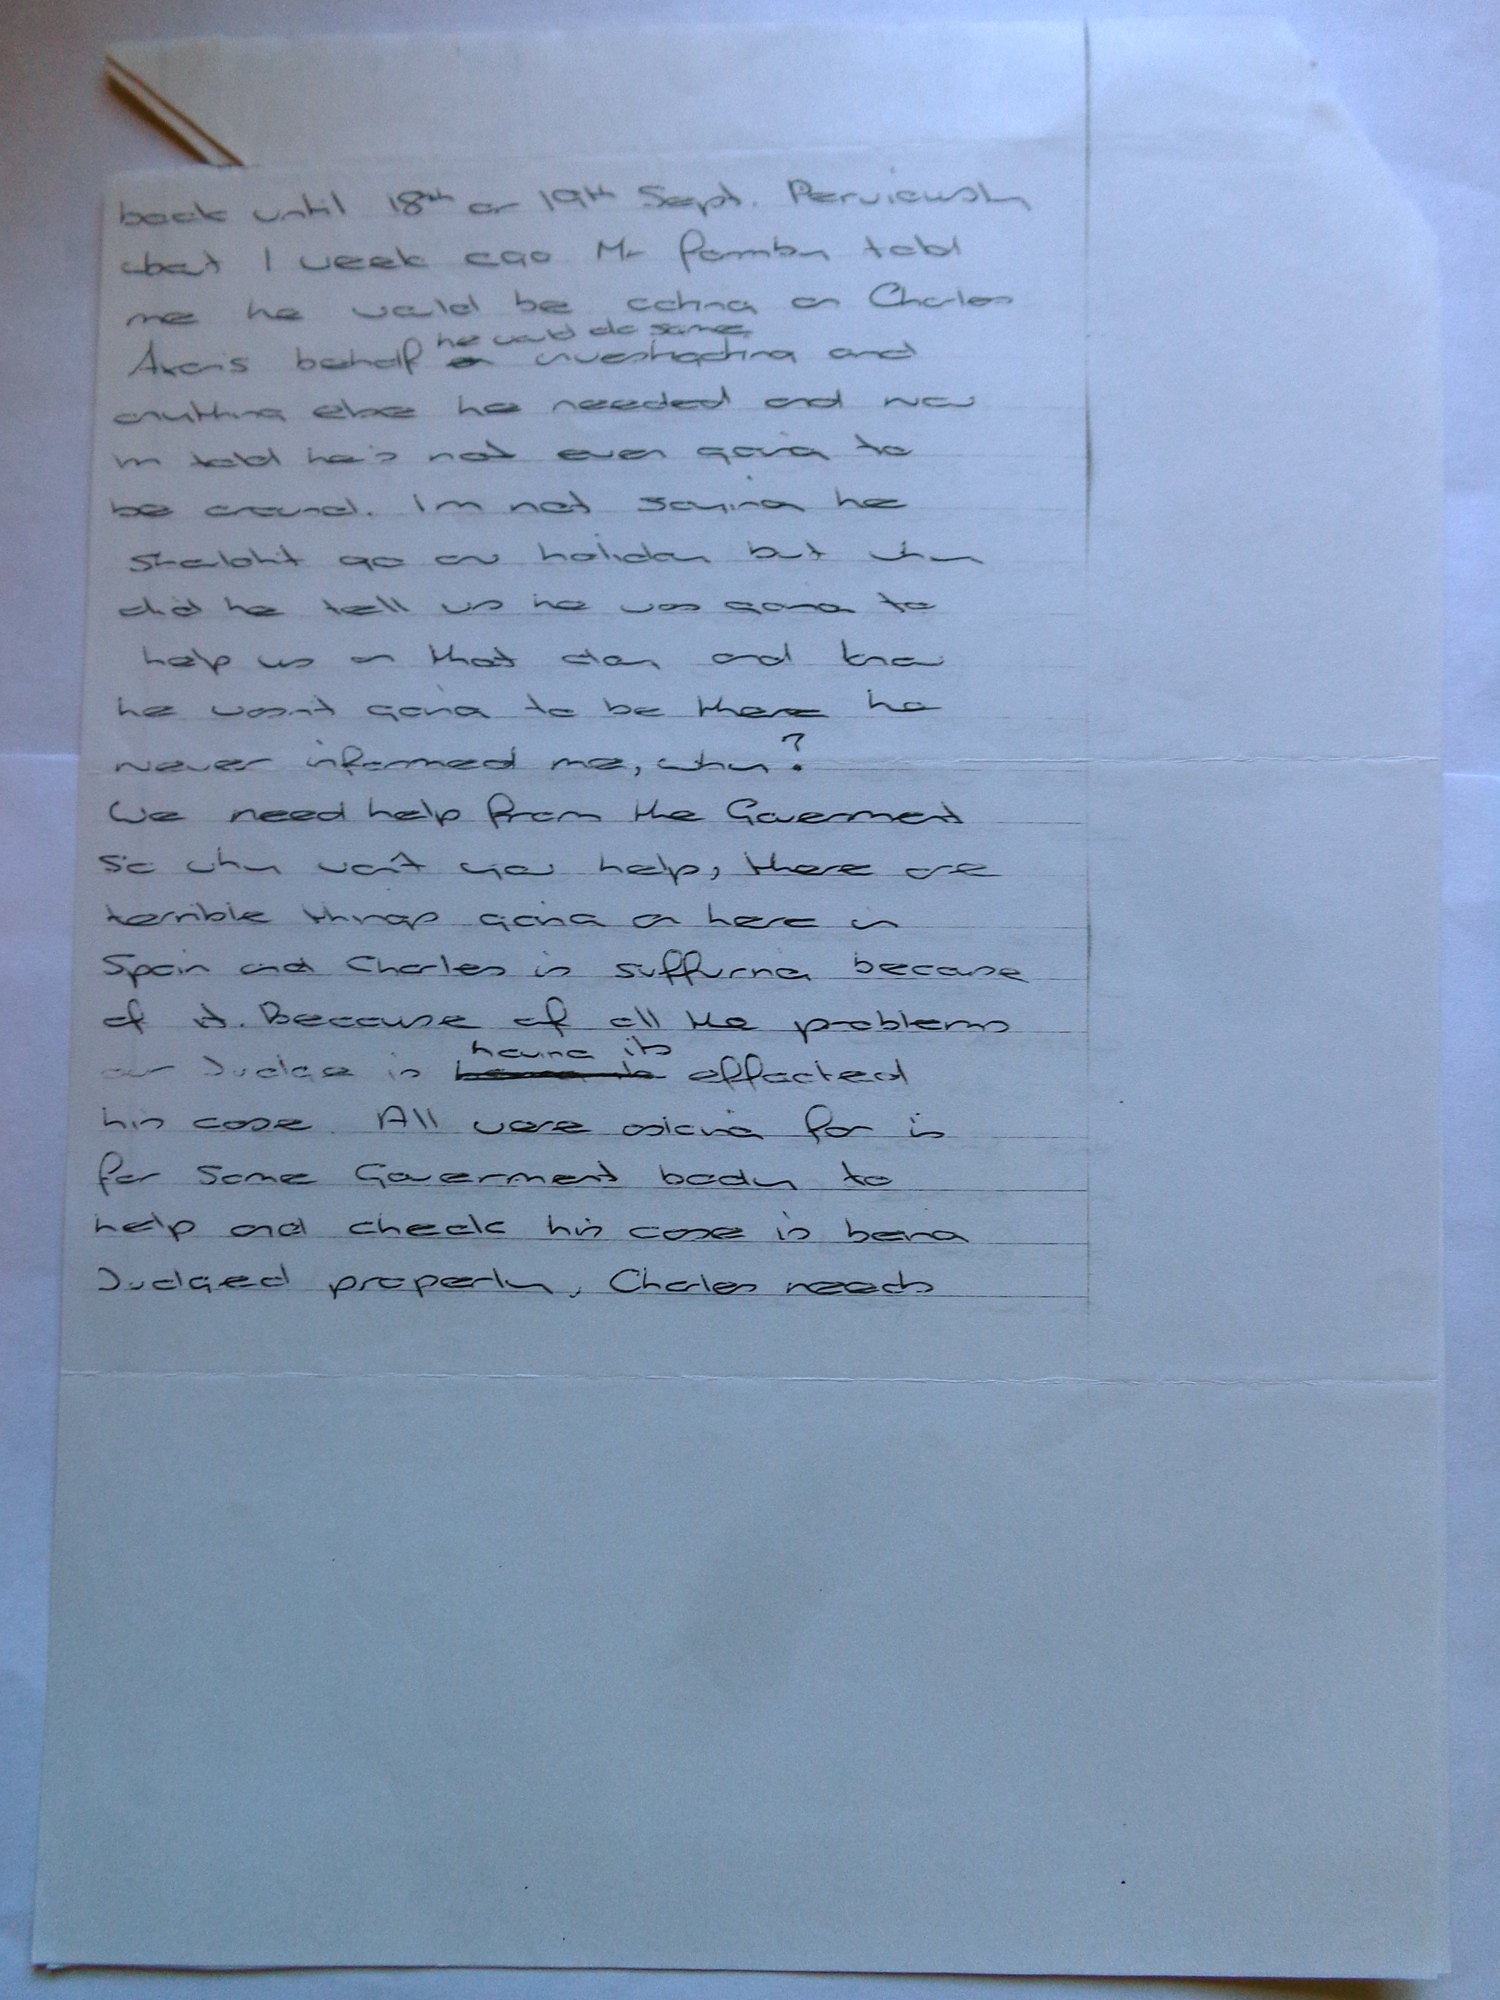 back until 18th or 19th Sept. Perviewsly
about 1 week ago Mr told
me he would be acting on Charles
behalf he would do some investigating and
anything else he needed and now
Im told he's not even going to
be around. I'm not saying he
shouldn't go on holiday but why
did he tell us he was going to
help us on that day and know
he wasn't going to be there he
never informed me, why?
We need help from the Goverment
so why won't you help, there are
terrible things going on here in
Spain and Charles is suffuring because
of it. Because of all the problems
our Judge is having its effected
his case. All were asking for is
for some Goverment body to
help and check his case is being
Judged properly, Charles needs